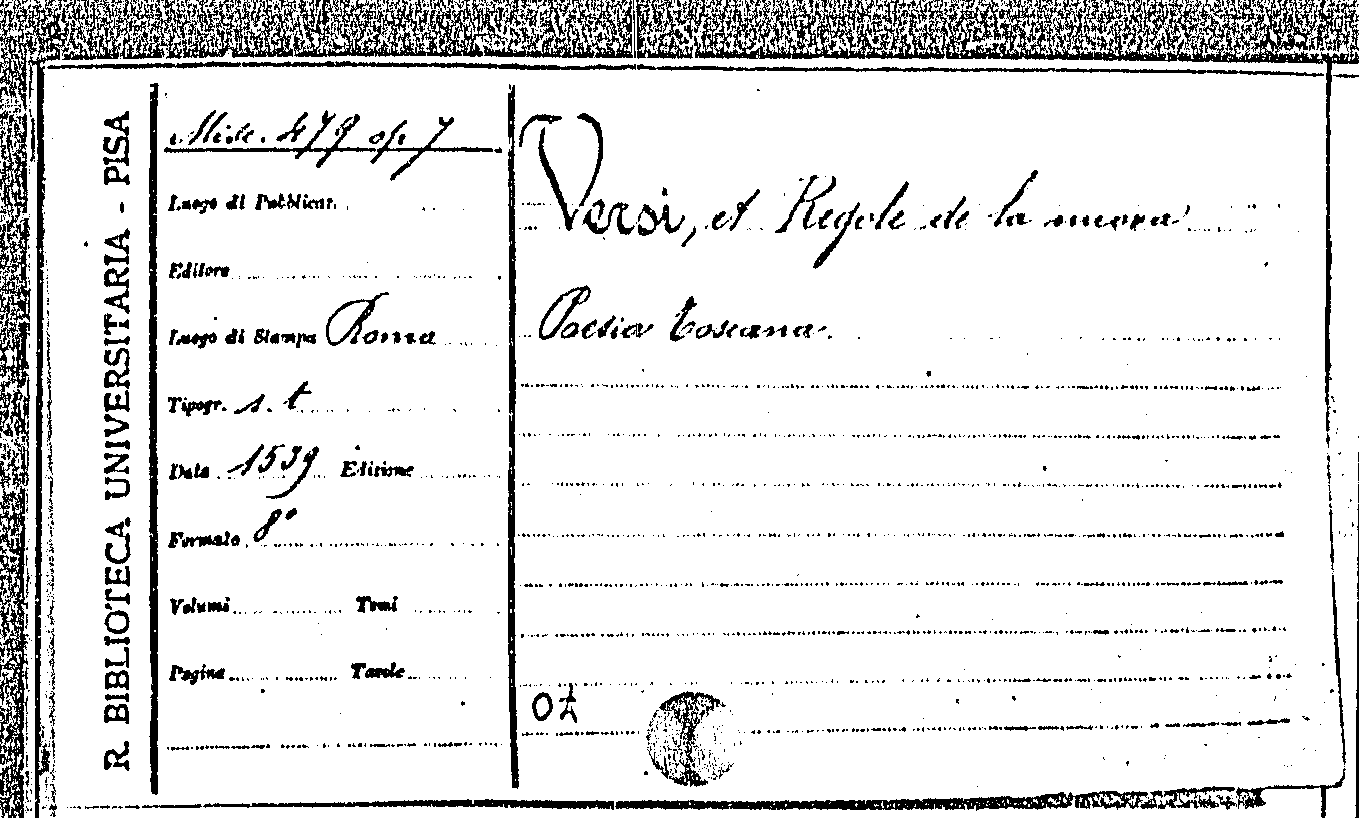 R. BIBLIOTECA UNIVERSITARIA - PISA
Misc. 479 op. 7
Luogo di Pubblicaz.
Editore
Luogo di Stampa Roma
Tipogr. s. t
Data 1539 Edizione
Formato 8°
Volumi Tomi
Pagine Tavole
Versi, et Regole de la nuova
Poesia toscana.